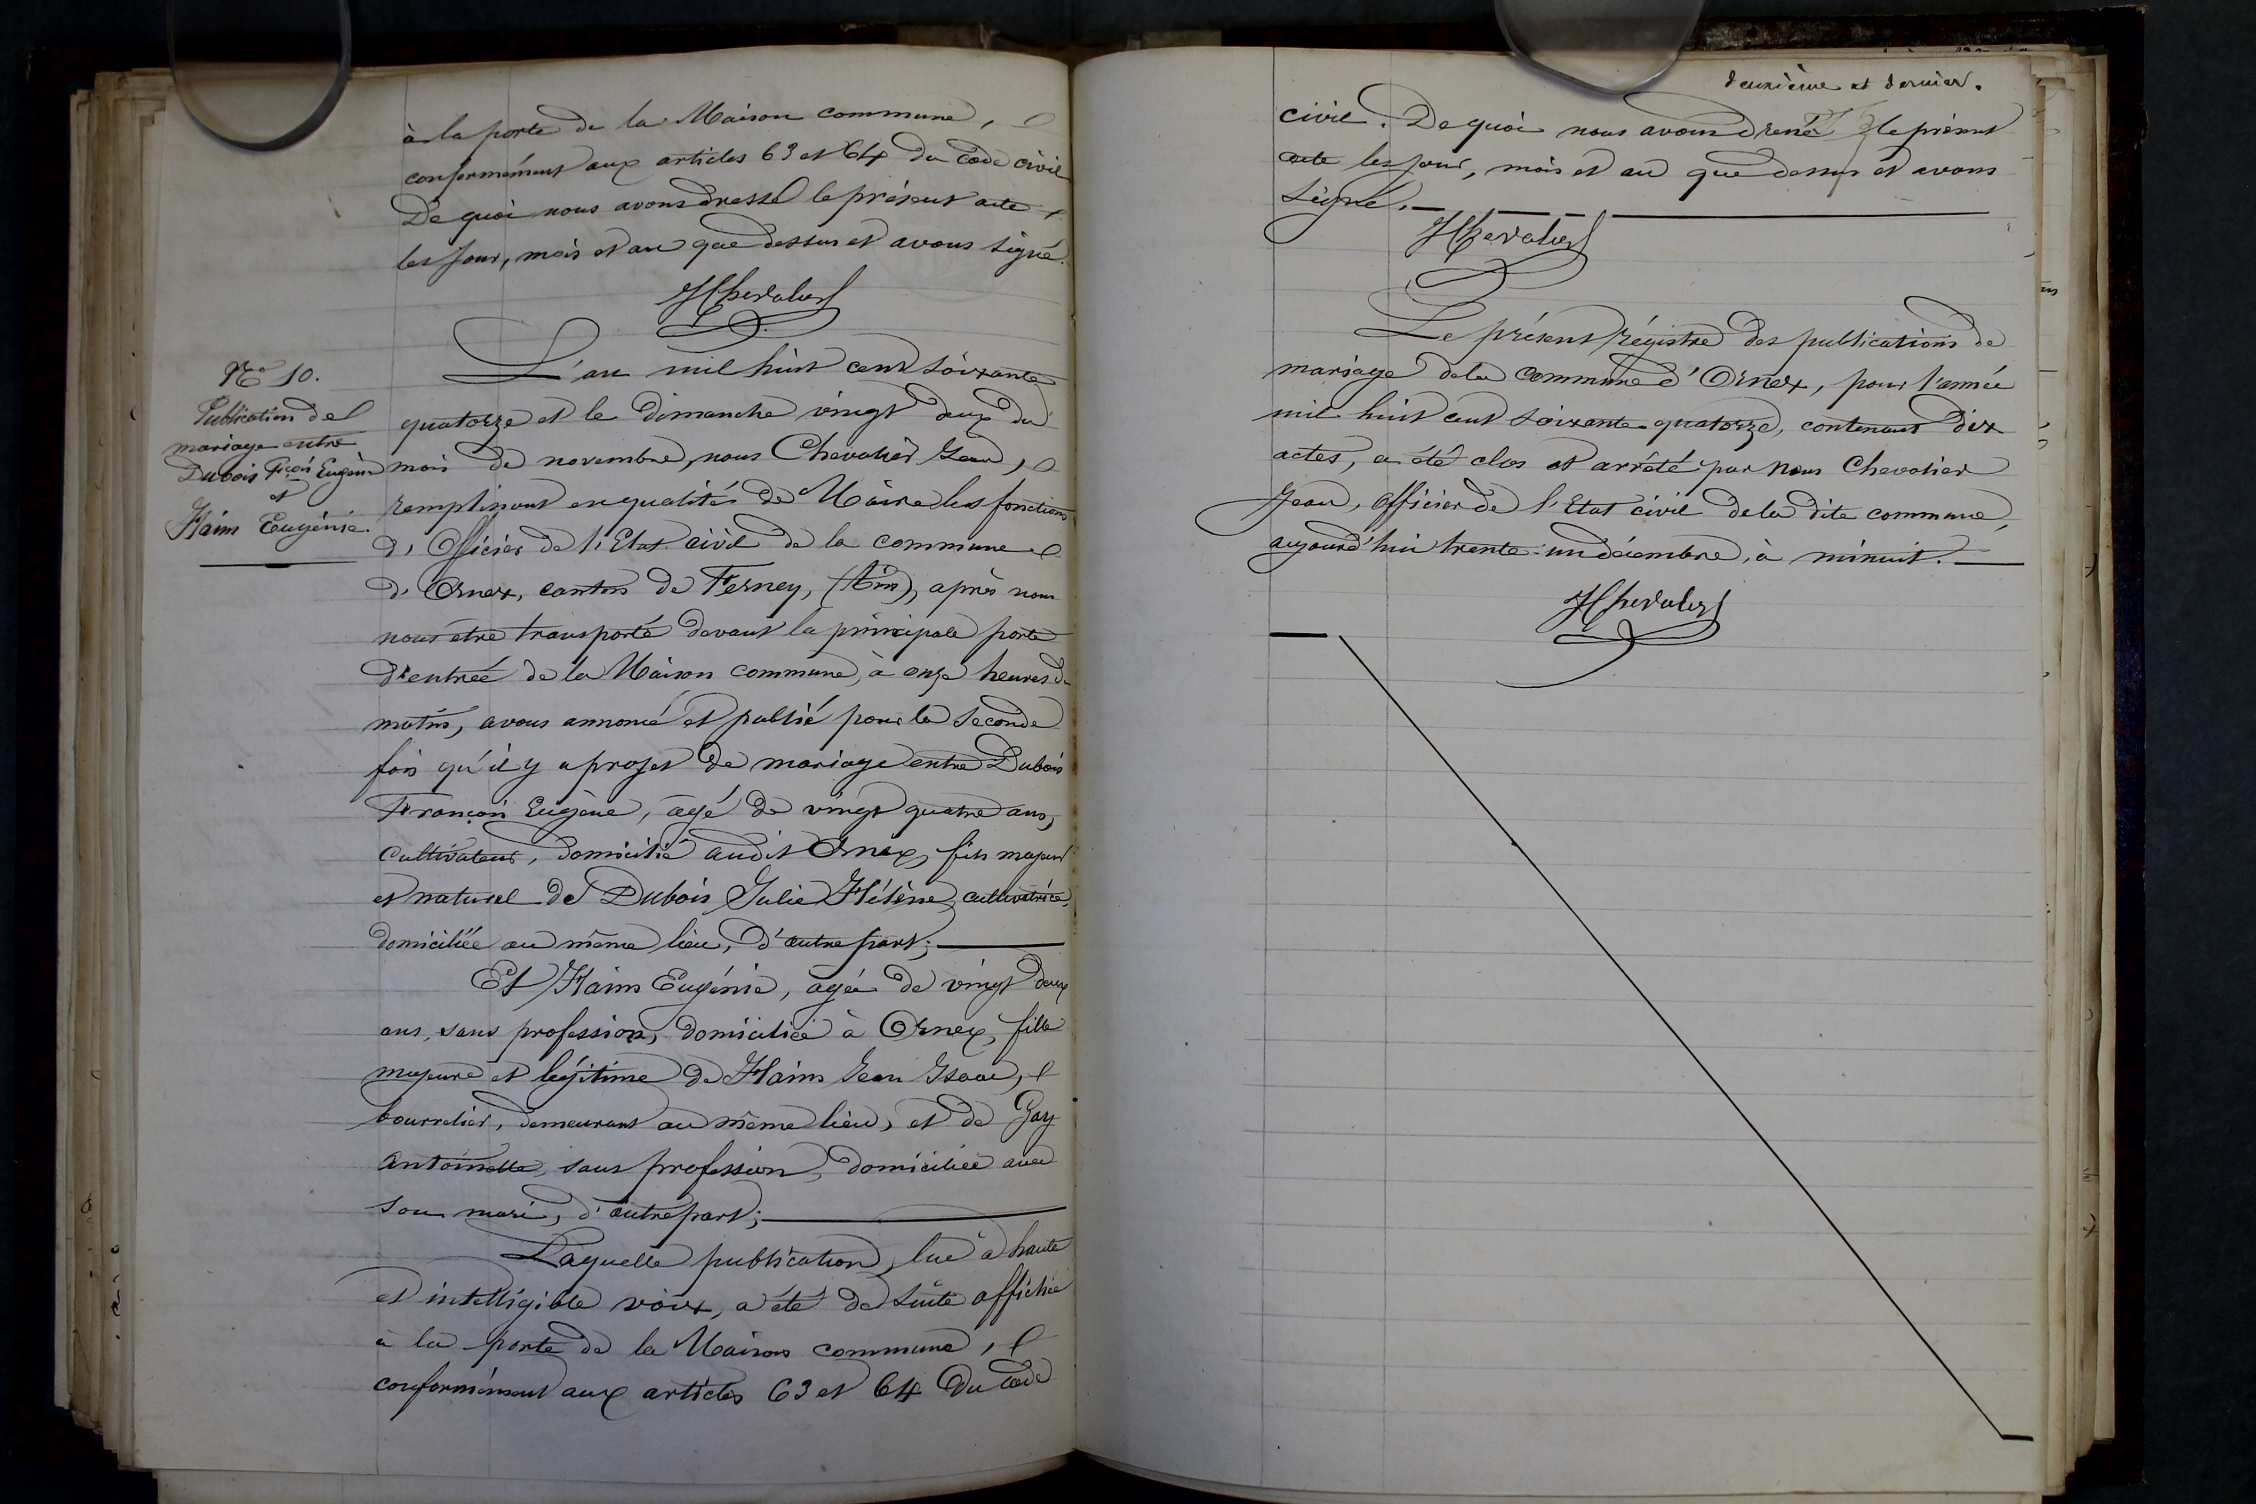 à la porte de la Maison commune,
conformément aux articles 63 et 64 du Code civil
De quoi nous avons dressé le présent acte
les jour, mois et an que dessus et avons signé.
JChevalier
N° 10.
Publication de
mariage entre
Dubois Fçois Eugène
et
Hains Eugénie.
L'an mil huit cent soixante
quatorze et le dimanche vingt deux du
mois de novembre, nous Chevalier Jean,
remplissant en qualité de Maire les fonctions
d'Officier de l'Etat civil de la commune
d'Ornex, canton de Ferney, (Ain), après nous
nous être transporté devant la principale porte
d'entrée de la Maison commune, à onze heures du
matin, avons annoncé et publié pour la seconde
fois qu'il y a projet de mariage entre Dubois
François Eugène, agé de vingt quatre ans,
cultivateur, domicilié audit Ornex, fils majeur
et naturel de Dubois Julie Hélène, cultivatrice,
domiciliée au même lieu, d'autre part;
Et Hains Eugénie, agée de vingt deux
ans, sans profession, domiciliée à Ornex, fille
majeure et légitime de Hains Jean Isaac,
bourrelier, demeurant au même lieu, et de Gay
Antoinette, sans profession, domiciliée avec
son mari, d'autre part;
Laquelle publication, lue à haute
et intelligible voix, a été de suite affichée
à la porte de la Maison commune,
conformément aux articles 63 et 64 du Code
deuxième et dernier.
civil. De quoi nous avons dressé le présent
acte les jour, mois et an que dessus et avons
signé.
JChevalier
Le présent régistre des publications de
mariage de la commune d'Ornex, pour l'année
mil huit cent soixante quatorze, contenant dix
actes, a été clos et arrêté par nous Chevalier
Jean, officier de l'Etat civil de la dite commune,
aujourd'hui trente-un décembre, à minuit.
JChevalier